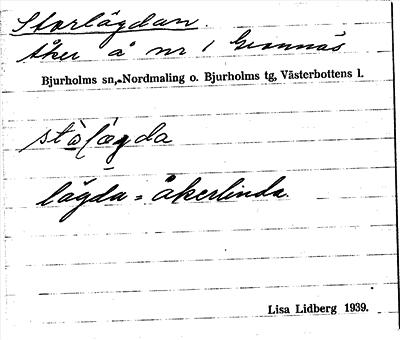 Storlägdan.
Åker å nr 1 Grannäs
Bjurholms sn, Nordmaling o. Bjurholms tg, Västerbottens l.
stòlǽgda
lägda = åkerlinda
Lisa Lidberg 1939.